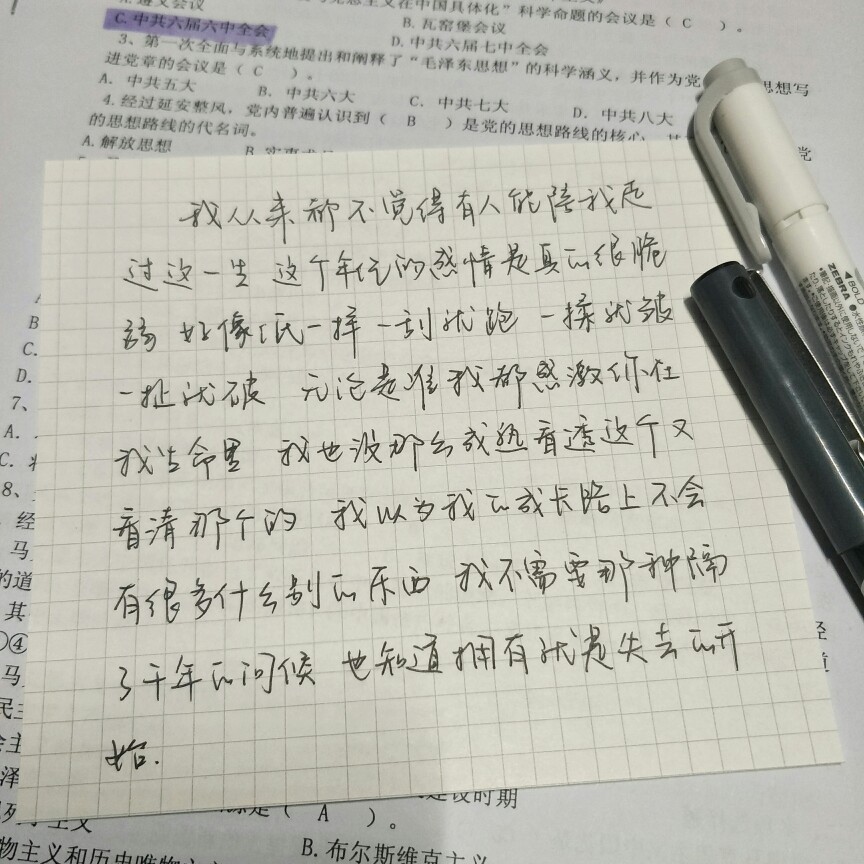 2. 遵义会议
在中国具体化”科学命题的会议是（ C ）。
B. 瓦窑堡会议
C. 中共六届六中全会
D. 中共六届七中全会
3、第一次全面与系统地提出和阐释了“毛泽东思想”的科学涵义，并作为党 思想写
进党章的会议是（ C ）。
A. 中共五大 B. 中共六大 C. 中共七大 D. 中共八大
4. 经过延安整风，党内普遍认识到（ B ）是党的思想路线的核心，
的思想路线的代名词。
A. 解放思想
我从来都不觉得有人能陪我走
过这一生 这个年纪的感情是真的很脆
弱 好像纸一样 一刮就跑 一揉就皱
一扯就破 无论是谁我都感激你在
我生命里 我也没那么成熟看透这个又
看清那个的 我以为我的成长路上不会
有很多什么别的东西 我不需要那种隔
了千年的问候 也知道拥有就是失去的开
始.
B
C.
D.
7、
A.
C.
8、
经
马
的道
其
④
马
民主
会主
泽
ZEBRA
建设时期
（ A ）。
物主义和历史唯物
B. 布尔斯维克主义